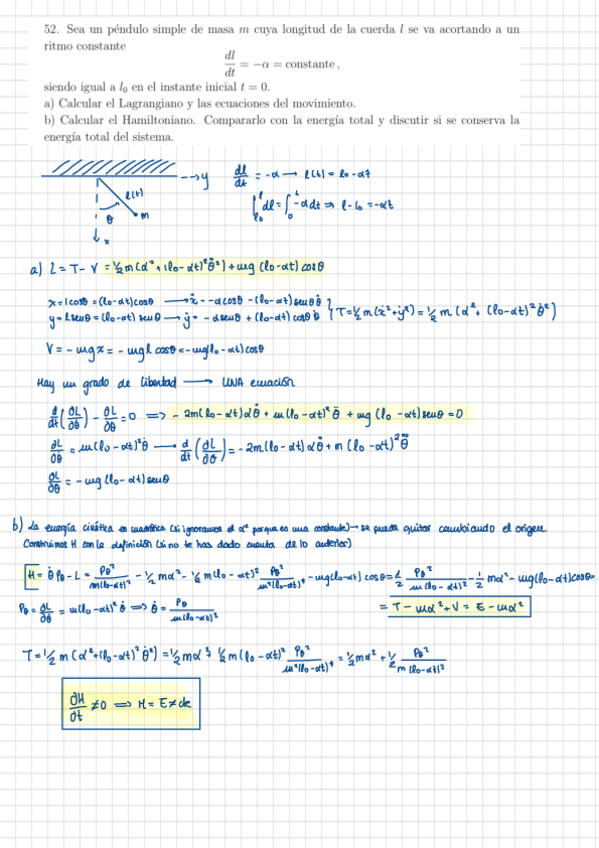 52. Sea un péndulo simple de masa m cuya longitud de la cuerda l se va acortando a un
ritmo constante
dl/dt = −α = constante ,
siendo igual a l₀ en el instante inicial t = 0.
a) Calcular el Lagrangiano y las ecuaciones del movimiento.
b) Calcular el Hamiltoniano. Compararlo con la energía total y discutir si se conserva la
energía total del sistema.
y dl/dt = -α → l(t) = l₀-αt
l(t)
m
θ
x
∫dl = ∫-αdt ⇒ l-l₀ = -αt
a) L = T - V = ½m(α² + (l₀-αt)²θ̇²) + mg(l₀-αt)cosθ
x = lcosθ = (l₀-αt)cosθ → ẋ = -αcosθ - (l₀-αt)senθ θ̇
y = lsenθ = (l₀-αt)senθ → ẏ = -αsenθ + (l₀-αt)cosθ θ̇
} T = ½m(ẋ²+ẏ²) = ½m(α² + (l₀-αt)²θ̇²)
V = -mgx = -mgl cosθ = -mg(l₀-αt)cosθ
Hay un grado de libertad → UNA ecuación
d/dt(∂L/∂θ̇) - ∂L/∂θ = 0 ⇒ -2m(l₀-αt)αθ̇ + m(l₀-αt)²θ̈ + mg(l₀-αt)senθ = 0
∂L/∂θ̇ = m(l₀-αt)²θ̇ → d/dt(∂L/∂θ̇) = -2m(l₀-αt)αθ̇ + m(l₀-αt)²θ̈
∂L/∂θ = -mg(l₀-αt)senθ
b) La energía cinética es cuadrática (si ignoramos el α² porque es una constante) → se puede quitar cambiando el origen
Construimos H con la definición (si no te has dado cuenta de lo anterior)
H = θ̇Pθ - L = Pθ²/m(l₀-αt)² - ½mα² - ½m(l₀-αt)² Pθ²/m²(l₀-αt)⁴ - mg(l₀-αt)cosθ = 1/2 Pθ²/m(l₀-αt)² - 1/2 mα² - mg(l₀-αt)cosθ =
Pθ = ∂L/∂θ̇ = m(l₀-αt)²θ̇ ⇒ θ̇ = Pθ/m(l₀-αt)²
= T - mα² + V = E - mα²
T = ½m(α²+(l₀-αt)²θ̇²) = ½mα² + ½m(l₀-αt)² Pθ²/m²(l₀-αt)⁴ = ½mα² + ½ Pθ²/m(l₀-αt)²
∂H/∂t ≠ 0 ⇒ H = E ≠ cte